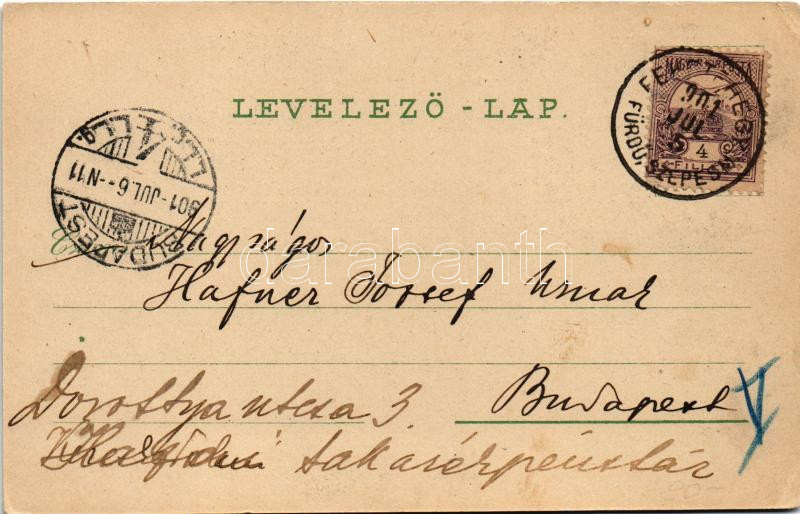 LEVELEZŐ - LAP.
MAGYAR
901
JUL
5
FÜRDŐ, SZEPES M
4
FILLÉR
BUDAPEST
901-JUL.6-N11
darabanth
Nagyságos
Hafner József Urnak
Dorottya utcsa 3 Budapest
takarékpénztár
V